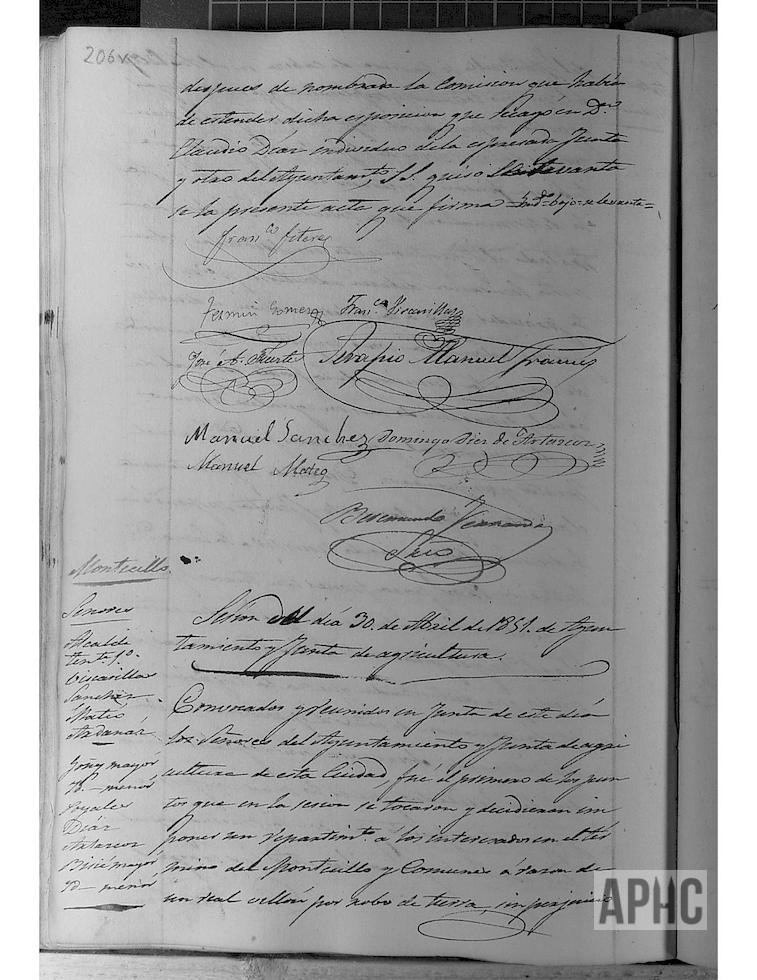 206v
despues de nombrada la Comision que había
de estender dicha esposicion que recayó en Dn
Claudio Díaz individuo de la espresada Junta
y otro del Ayuntamto, S.S. quiso se levanta
se la presente acta que firma
Franco
Fermin Gomez Franca Viscarillas
José A. Huerte Serapio Manuel
Manuel Sanchez Domingo Diez de
Manuel Mateo
Srio
Montecillo
Señores
Alcalde
tente 1º
Viscarillas
Sanchez
Mateo
Andanar
mayor
Yd. menor
Díaz
mayor
Yd menor
Sesion del día 30. de Abril de 1851. de Ayun
tamiento y Junta de agricultura.
Convocados y reunidos en Junta de este día
los Señores del Ayuntamiento y Junta de agri
cultura de esta Ciudad, fué el primero de los pun
tos que en la sesion se tocaron y decidieron im
poner un repartimto á los interesados en el tér
mino del Montecillo y Comunes á razon de
un real vellón por robo de tierra, sin perjuicio
APHC